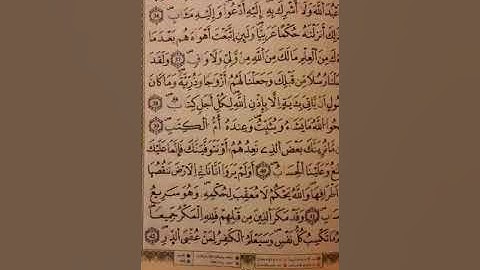 عبد الله ولا أشرك به إليه أدعوا وإليه مـٔاب
ذلك أنزلنه حكما عربيا ولئن اتبعت أهواءهم بعد ما
ءك من العلم ما لك من الله من ولي ولا واق ولقد
لنا رسلا من قبلك وجعلنا لهم أزوجا وذرية وما كان
سول أن ياتي بـٔاية إلا بإذن الله لكل أجل كتاب
حوا الله ما يشاء ويثبت وعنده أم الكتب
ما نرينك بعض الذي نعدهم أو نتوفينك فإنما عليك
غ وعلينا الحساب أولم يروا انا ناتي الارض ننقصها
أطرافها والله يحكم لا معقب لحكمه وهو سريع
ساب وقد مكر الذين من قبلهم فلله المكر جميعا
ما تكسب كل نفس وسيعلم الكفر لمن عقبى الدار